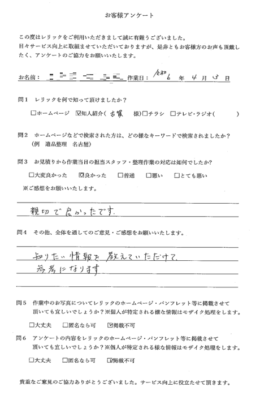 お客様アンケート
この度はレリックをご利用いただきまして誠に有難うございました。
日々サービス向上に取組ませていただいておりますが、是非ともお客様方のお声も頂戴したく、アンケートのご協力をお願いいたします。
お名前： 作業日：令和6年4月13日
問1 レリックを何で知って頂けましたか？
□ホームページ ☑知人紹介( 様) □チラシ □テレビ・ラジオ( )
問2 ホームページなどで検索された方は、どの様なキーワードで検索されましたか？
(例 遺品整理 名古屋)
問3 お見積りから作業当日の担当スタッフ・整理作業の対応は如何でしたか？
□大変良かった ☑良かった □普通 □悪い □とても悪い
※ご感想をお願いいたします。
親切で良かったです。
問4 その他、全体を通してのご意見・ご感想をお願いいたします。
知りたい情報を教えていただけて、
参考になります
問5 作業中のお写真についてレリックのホームページ・パンフレット等に掲載させて
頂いても宜しいでしょうか？※個人が特定される様な情報はモザイク処理をします。
□大丈夫 □匿名なら可 ☑掲載不可
問6 アンケートの内容をレリックのホームページ・パンフレット等に掲載させて
頂いても宜しいでしょうか？※個人が特定される様な情報はモザイク処理をします。
□大丈夫 □匿名なら可 ☑掲載不可
貴重なご意見のご協力ありがとうございました。サービス向上に役立たせて頂きます。